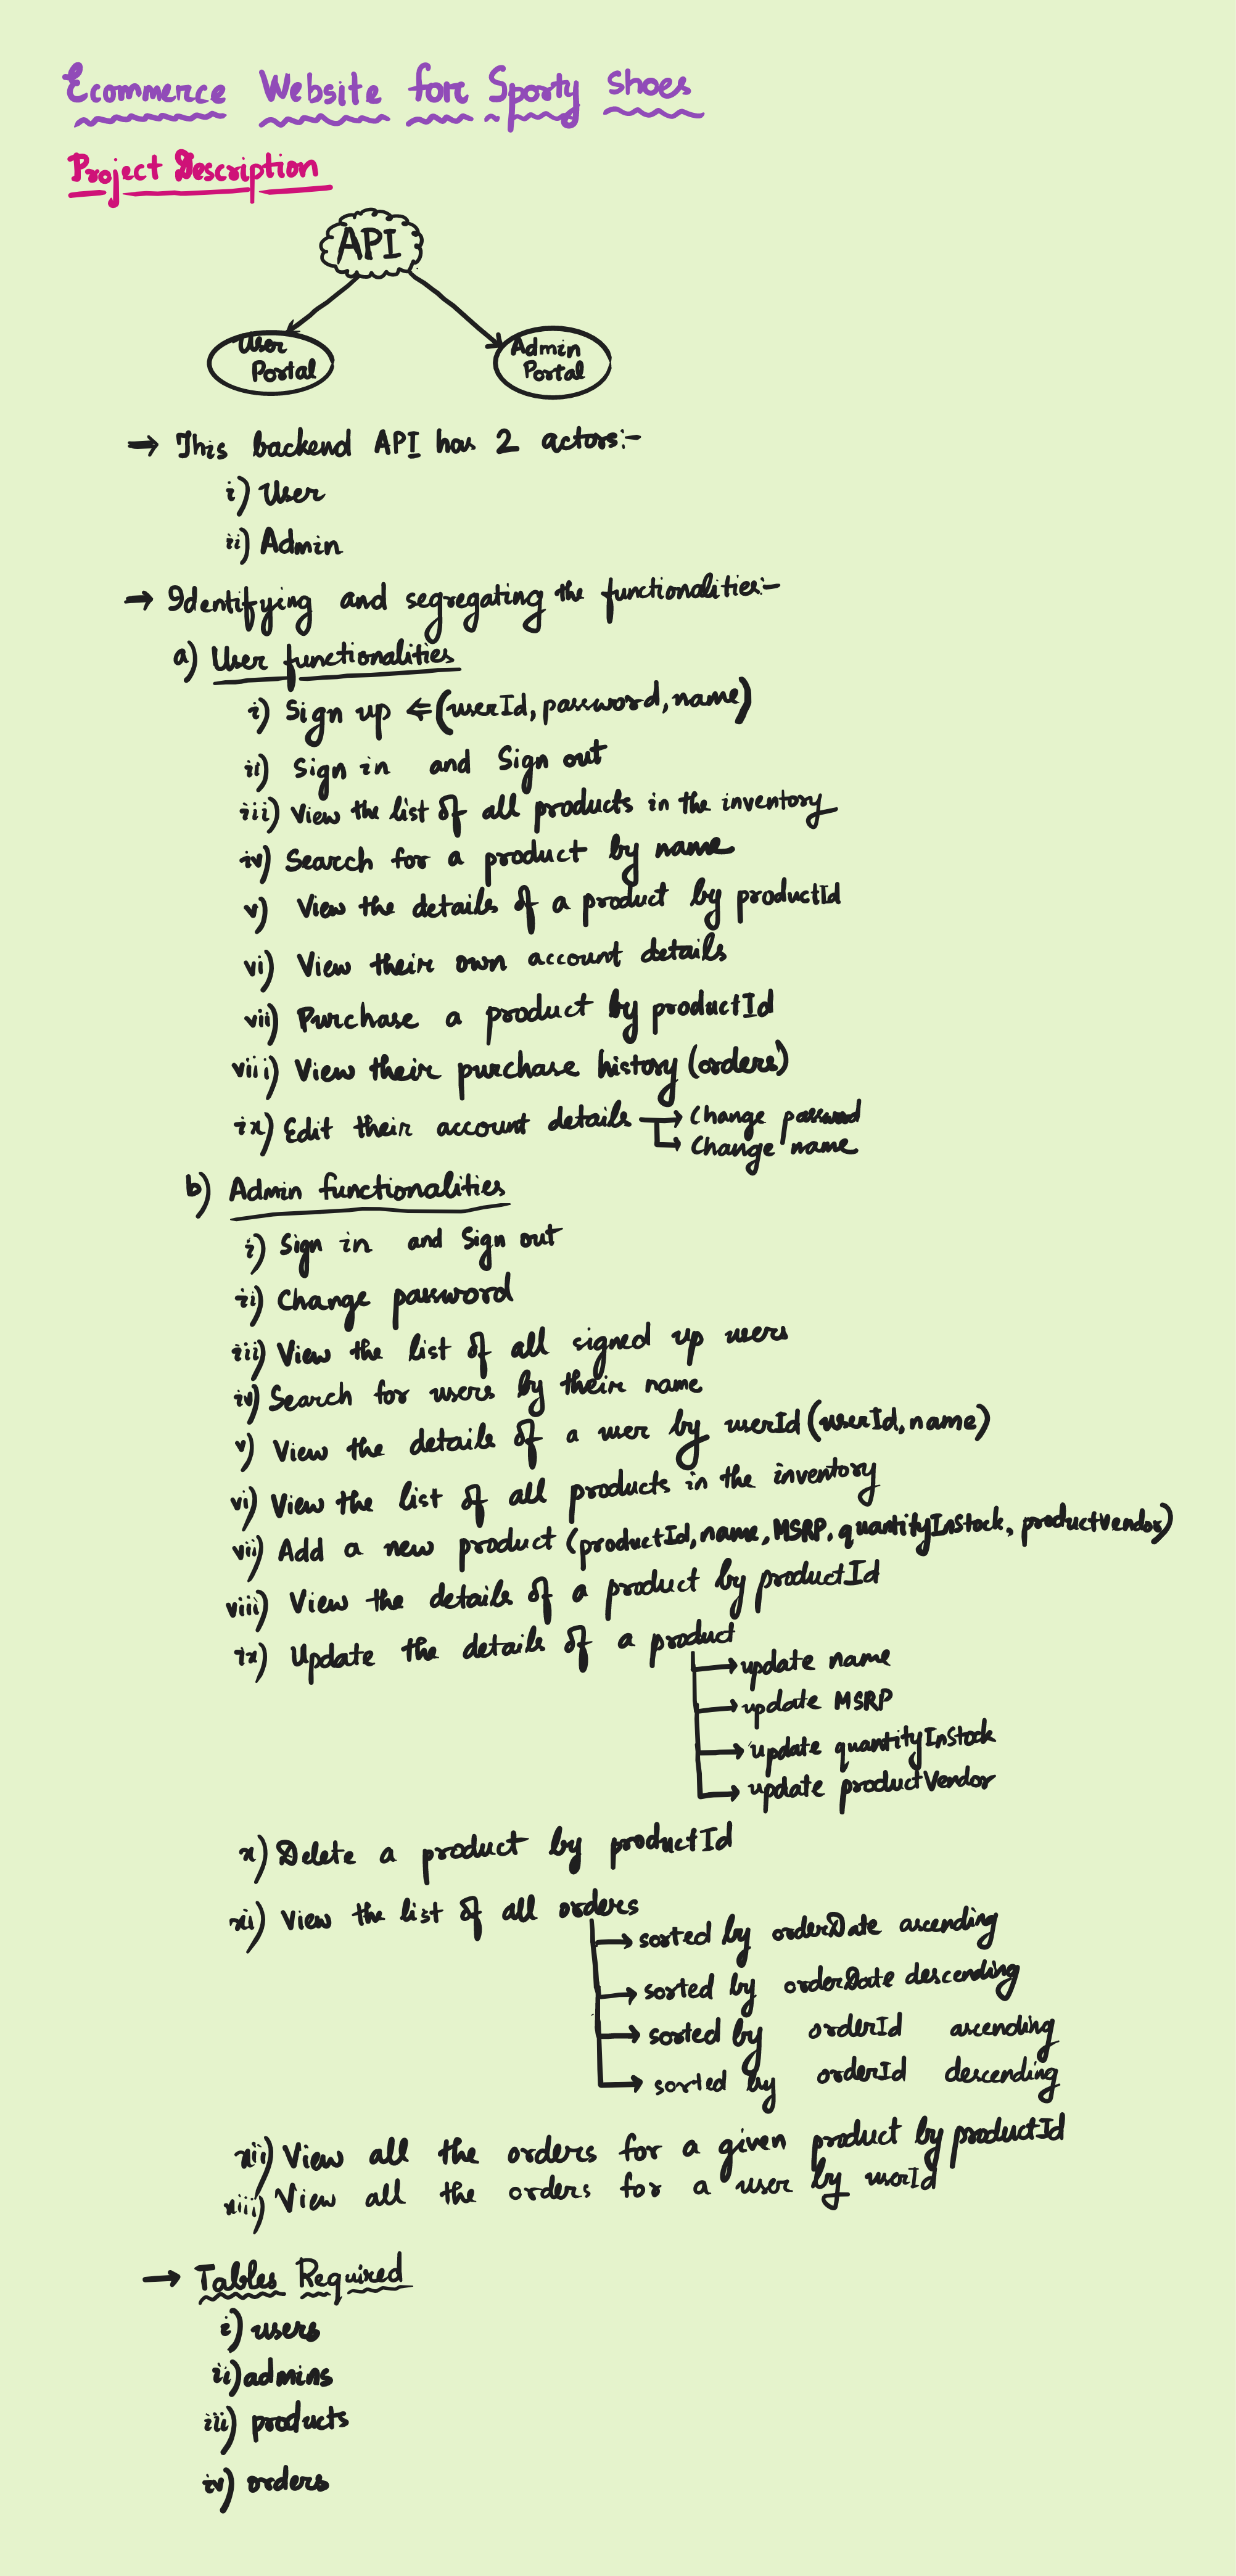 Ecommerce Website for Sporty shoes
Project Description
API
User Portal
Admin Portal
→ This backend API has 2 actors:-
i) User
ii) Admin
→ Identifying and segregating the functionalities:-
a) User functionalities
i) Sign up ⇐ (userId, password, name)
ii) Sign in and Sign out
iii) View the list of all products in the inventory
iv) Search for a product by name
v) View the details of a product by productId
vi) View their own account details
vii) Purchase a product by productId
viii) View their purchase history (orders)
ix) Edit their account details → Change password
→ Change name
b) Admin functionalities
i) Sign in and Sign out
ii) Change password
iii) View the list of all signed up users
iv) Search for users by their name
v) View the details of a user by userId (userId, name)
vi) View the list of all products in the inventory
vii) Add a new product (productId, name, MSRP, quantityInStock, productVendor)
viii) View the details of a product by productId
ix) Update the details of a product
→ update name
→ update MSRP
→ update quantityInStock
→ update productVendor
x) Delete a product by productId
xi) View the list of all orders
→ sorted by orderDate ascending
→ sorted by orderDate descending
→ sorted by orderId ascending
→ sorted by orderId descending
xii) View all the orders for a given product by productId
xiii) View all the orders for a user by userId
→ Tables Required
i) users
ii) admins
iii) products
iv) orders